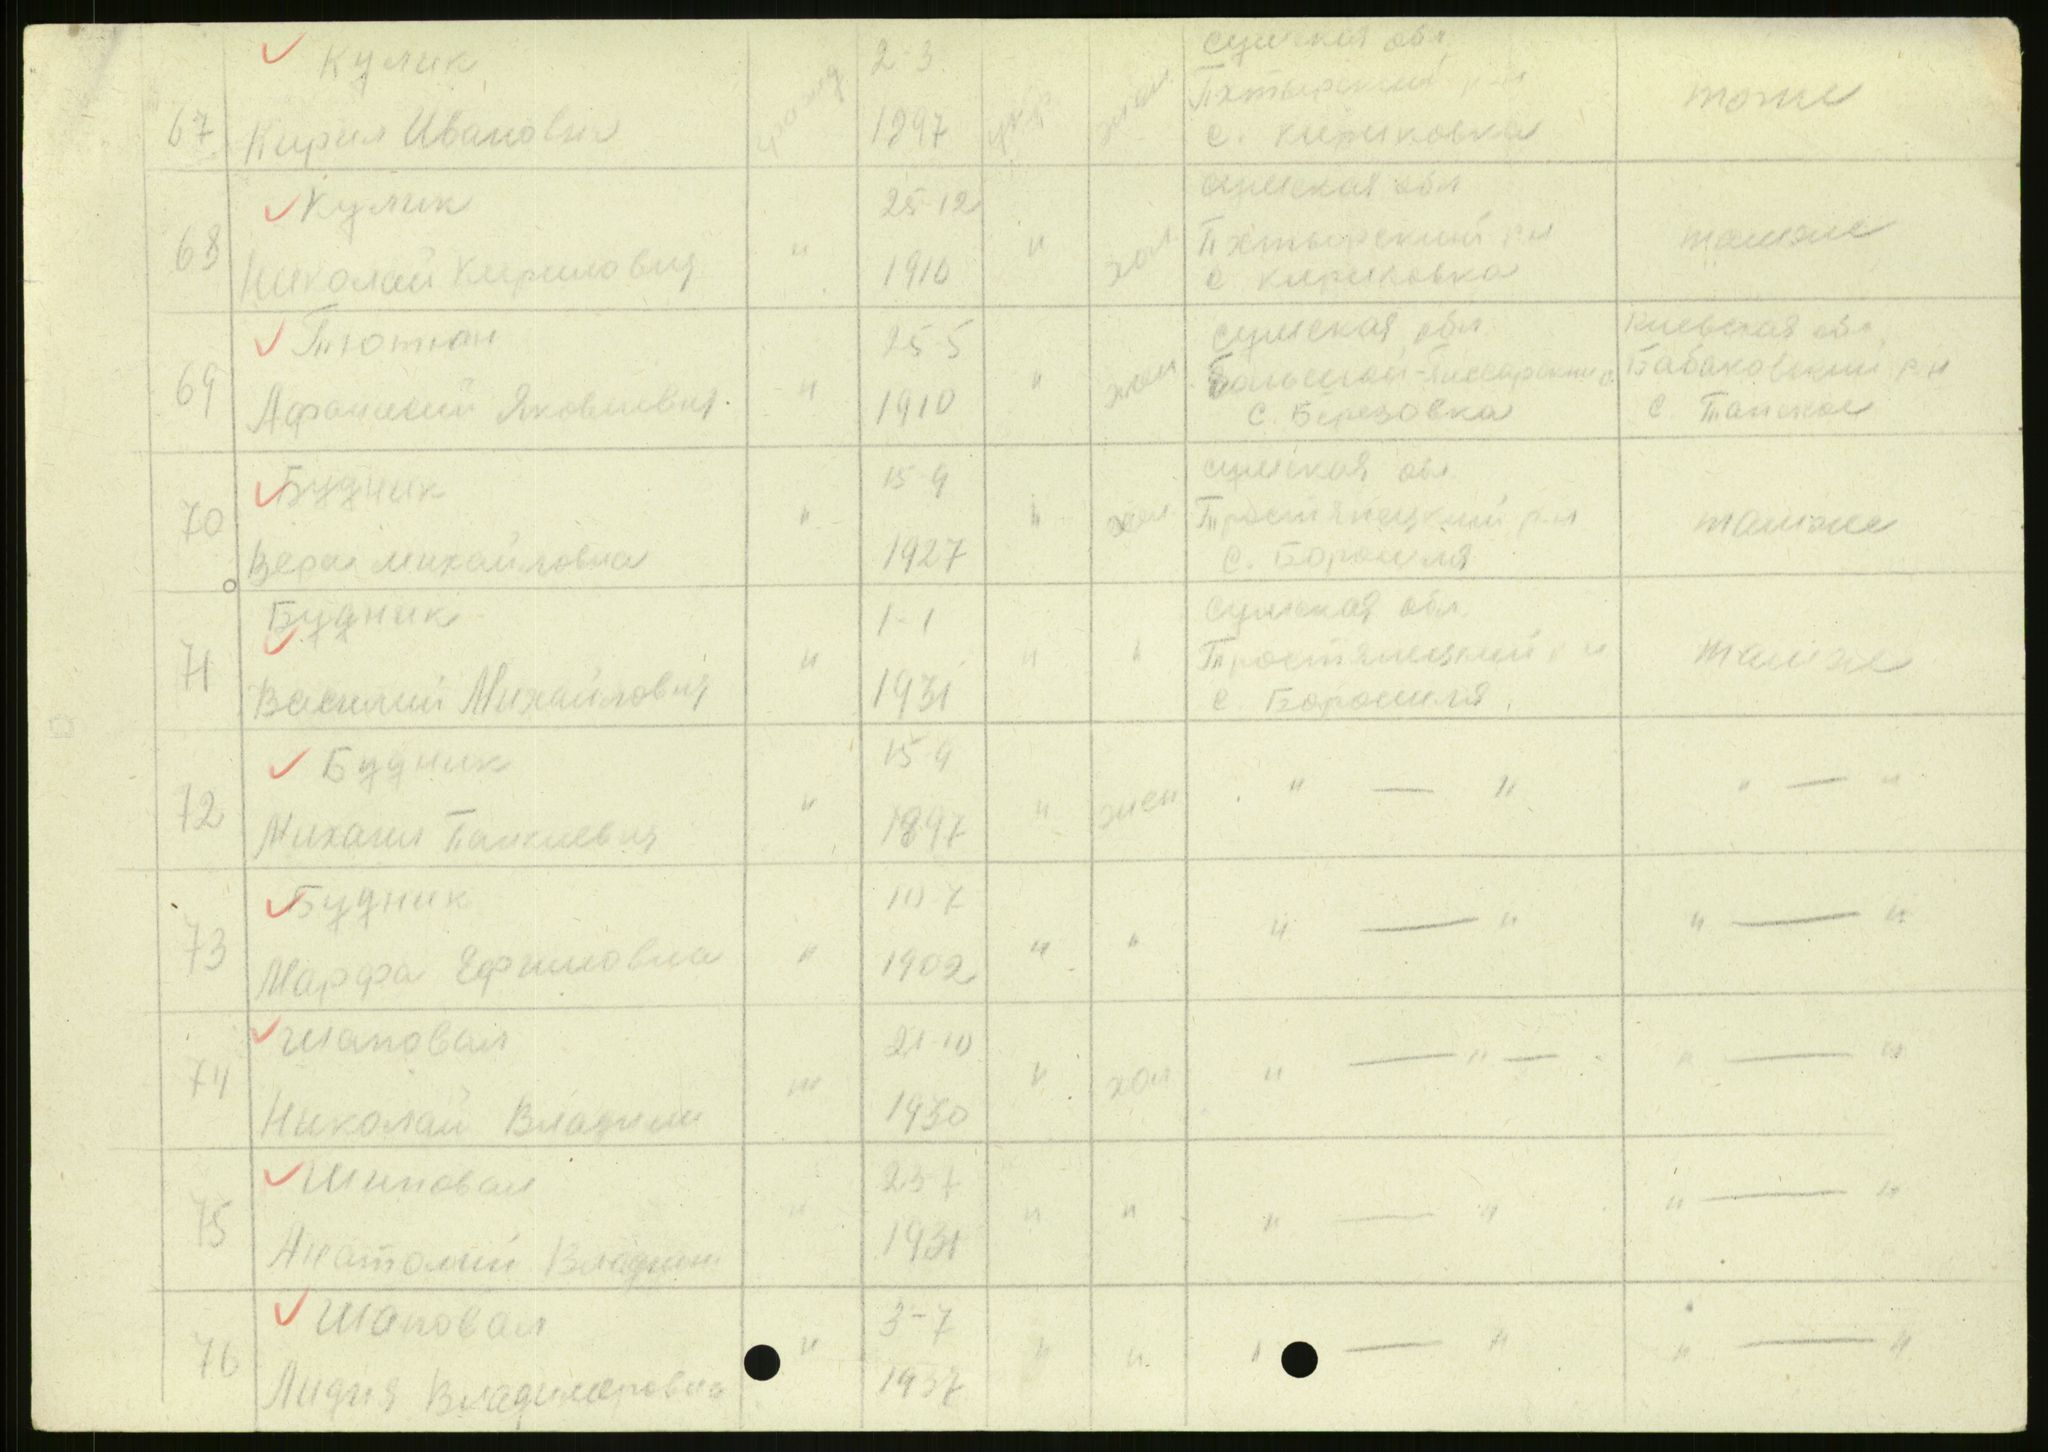 67 Кулик
Кирил Иванович
2-3
1897
укр
жен.
Сумская обл
Пхтырский р-н
с. Кириковка
тоже
68 Кулик
Николай Кирилович
"
25-12
1910
"
хол
Сумская обл
Пхтырский р-н
с. Кириковка
тамже
69 Тютюн
Афанасий Яковлевич
"
25-5
1910
"
жен
Сумская обл.
с. Березовка
Киевская обл
Бабаковский р-н
с. Танское
70 Будник
Вера Михайловна
"
15-9
1927
"
хол
Сумская обл
Тростянецкий р-н
с. Бороиля
тамже
71 Будник
Василий Михайлович
"
1-1
1931
"
"
Сумская обл.
Тростянецкий р-н
с. Бороиля
тамже
72 Будник
Михаил
"
15-9
1897
"
жен
" — "
" — "
73 Будник
Марфа Ефимовна
"
10-7
1902
"
"
" — "
" — "
74 Шаповал
Николай Владими
"
21-10
1930
"
хол
" — " —
" — "
75 Шаповал
Анатолий Владим
"
23-7
1931
"
"
" — "
" — "
76 Шаповал
Лидия Владимировна
"
3-7
1937
"
"
" — "
" — "